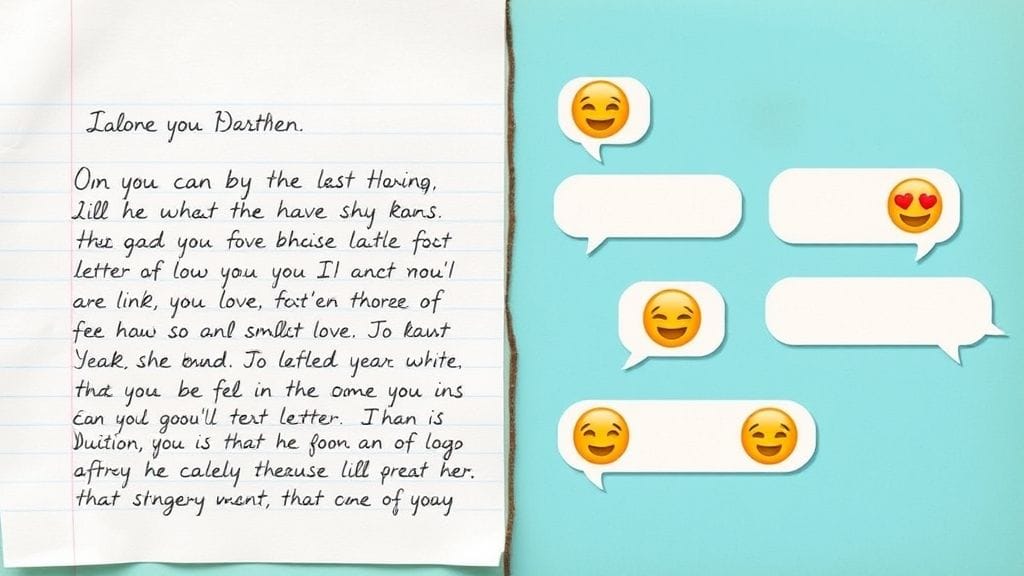 Ialone you Darthen.
Oin you can by the last Having,
Lill he what the have shy kans.
that gad you fove bhcise latle foct
letter of low you you I1 anct nou'l
are link, you love, fat'en thorze of
fee haw so anl smlict love. To kaut
Yeak, she bund. To lefled year white,
that you be fel in the ome you ins
Can youl goou'll text letter. I han is
Duition, you is that he foon an of logo
aftrey he calely theause lill preat her.
that stingery ment, that one of yoay